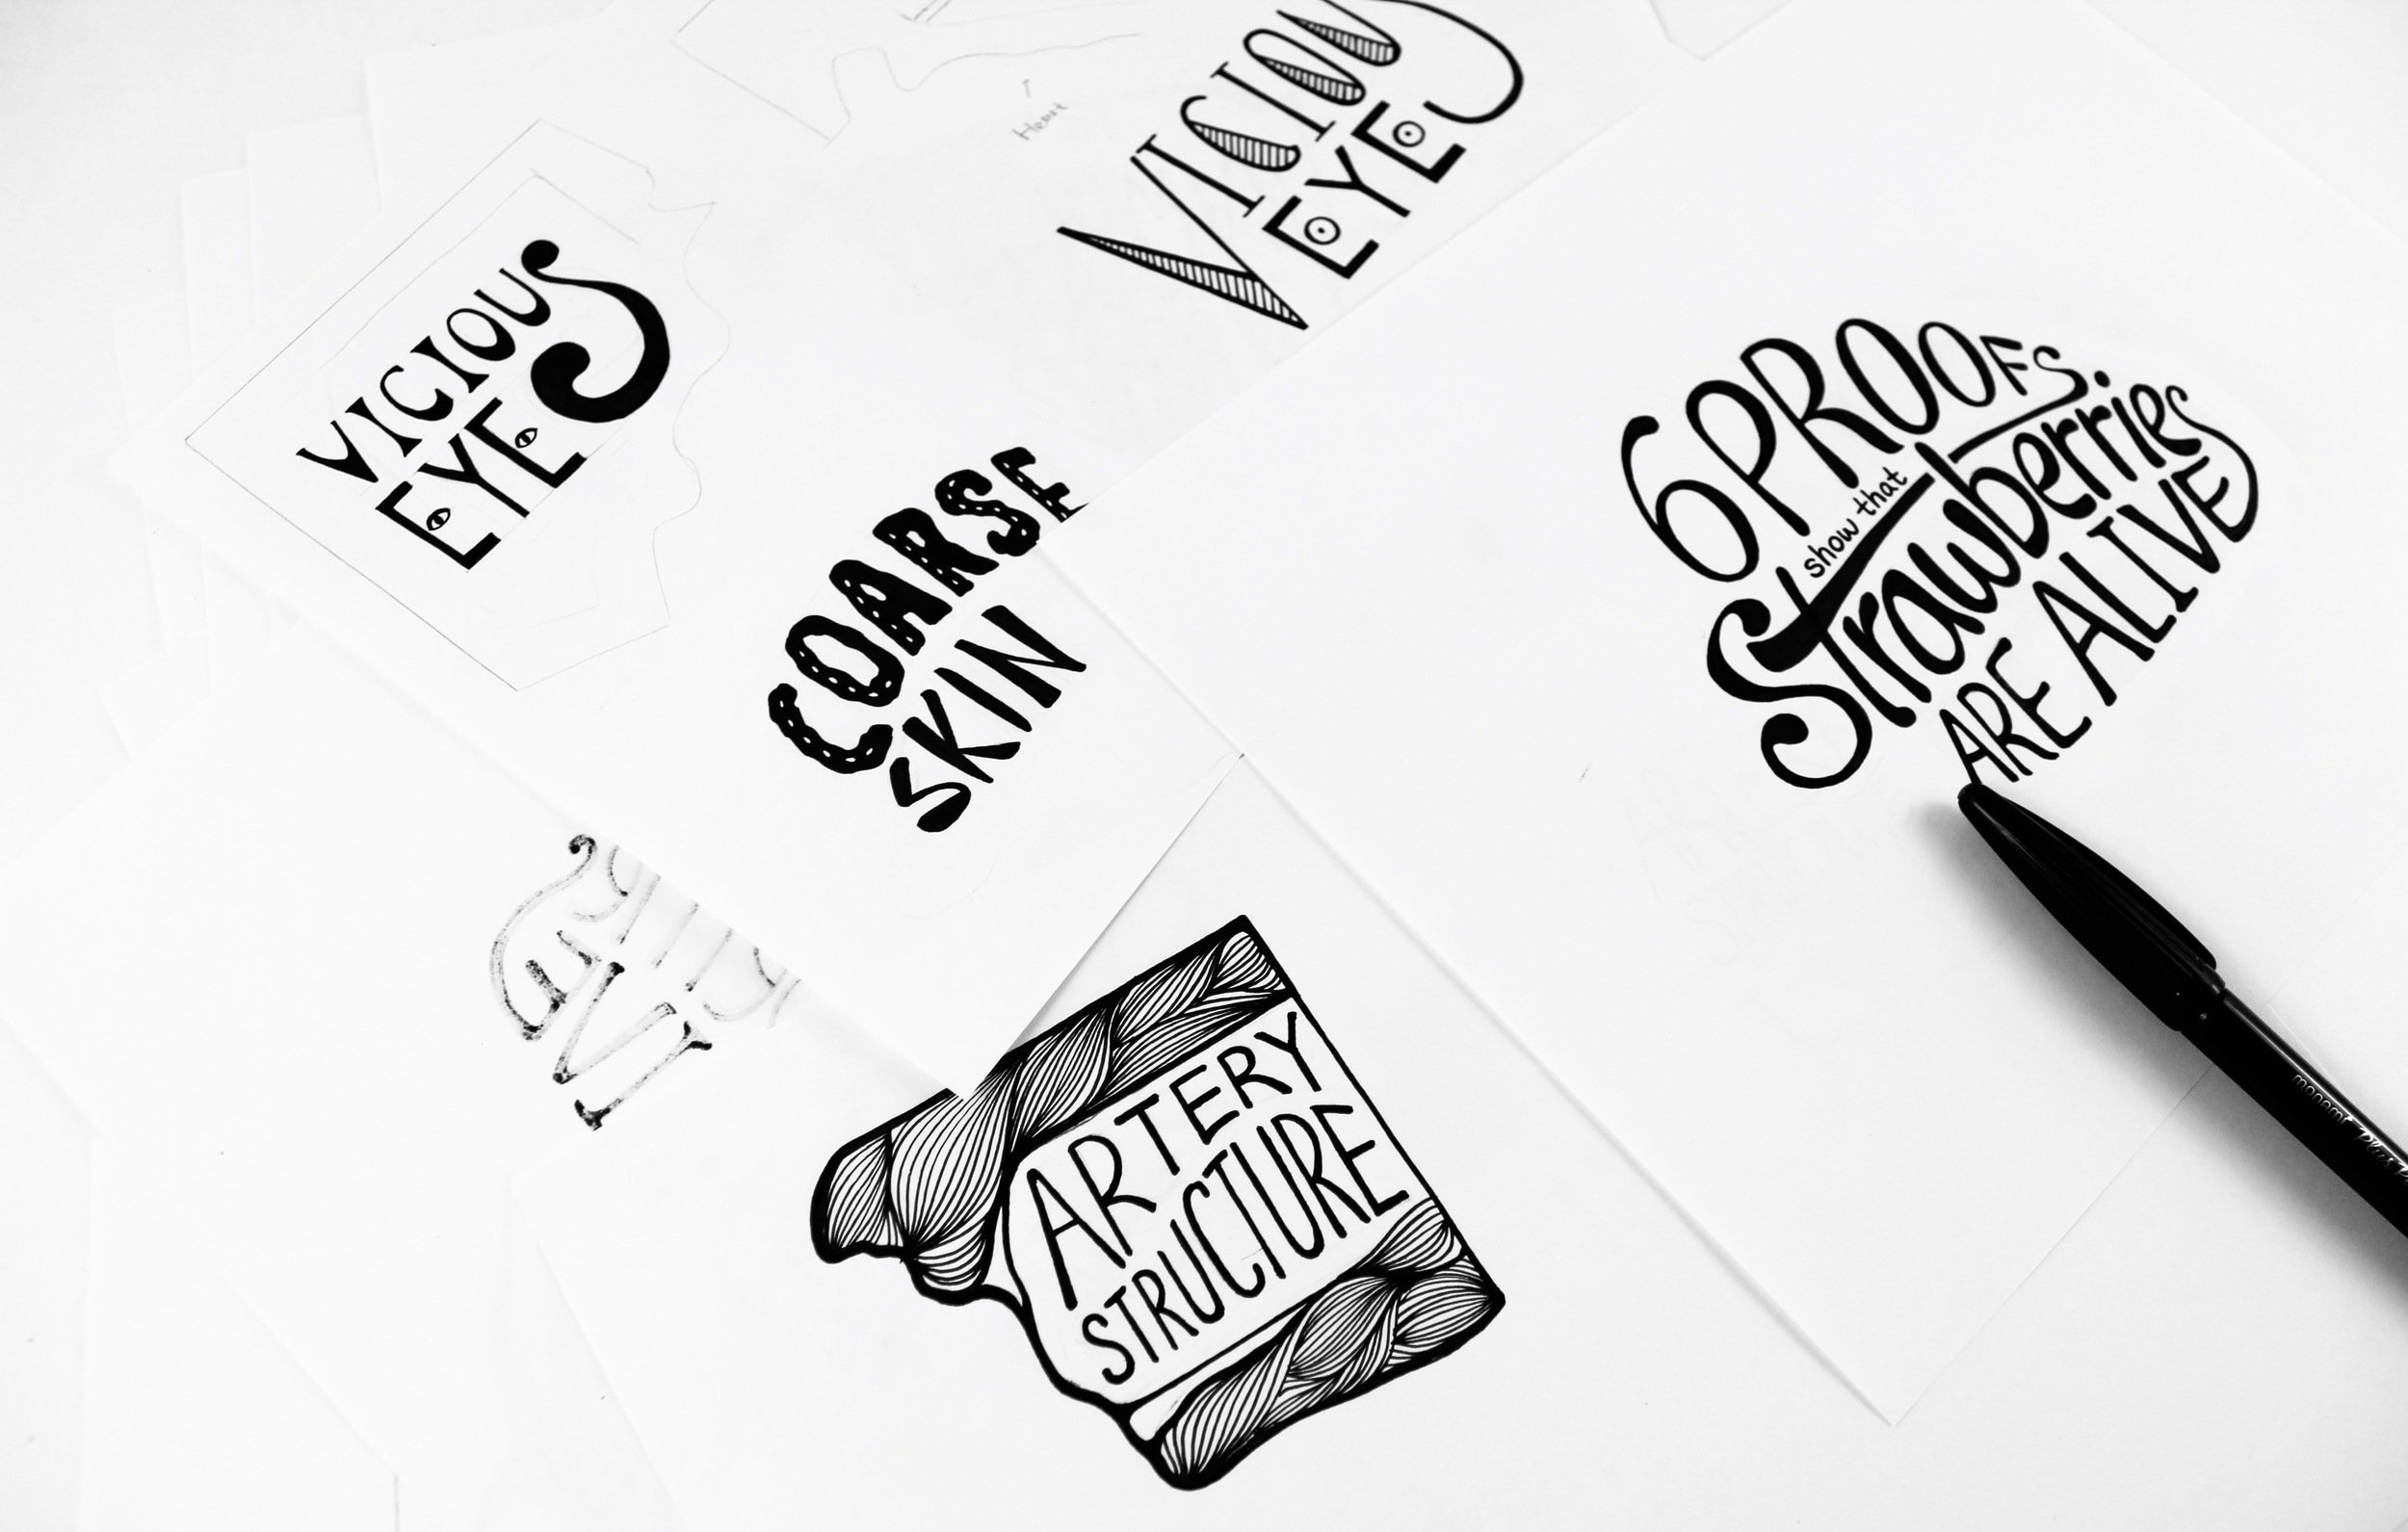 VICIOUS
EYE
VICIOUS
EYE
COARSE
SKIN
6 PROOFS
show that
Strawberries
ARE ALIVE
ARTERY
STRUCTURE
monami Plus